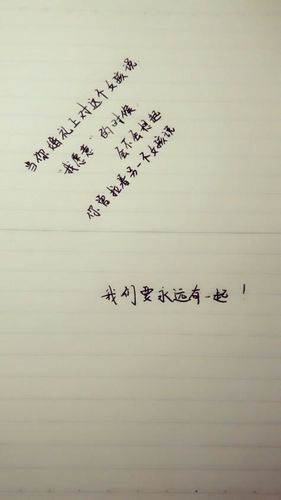 当你婚礼上对这个女孩说
"我愿意"的时候
会不会想起
你曾抱着另一个女孩说
我们要永远在一起！